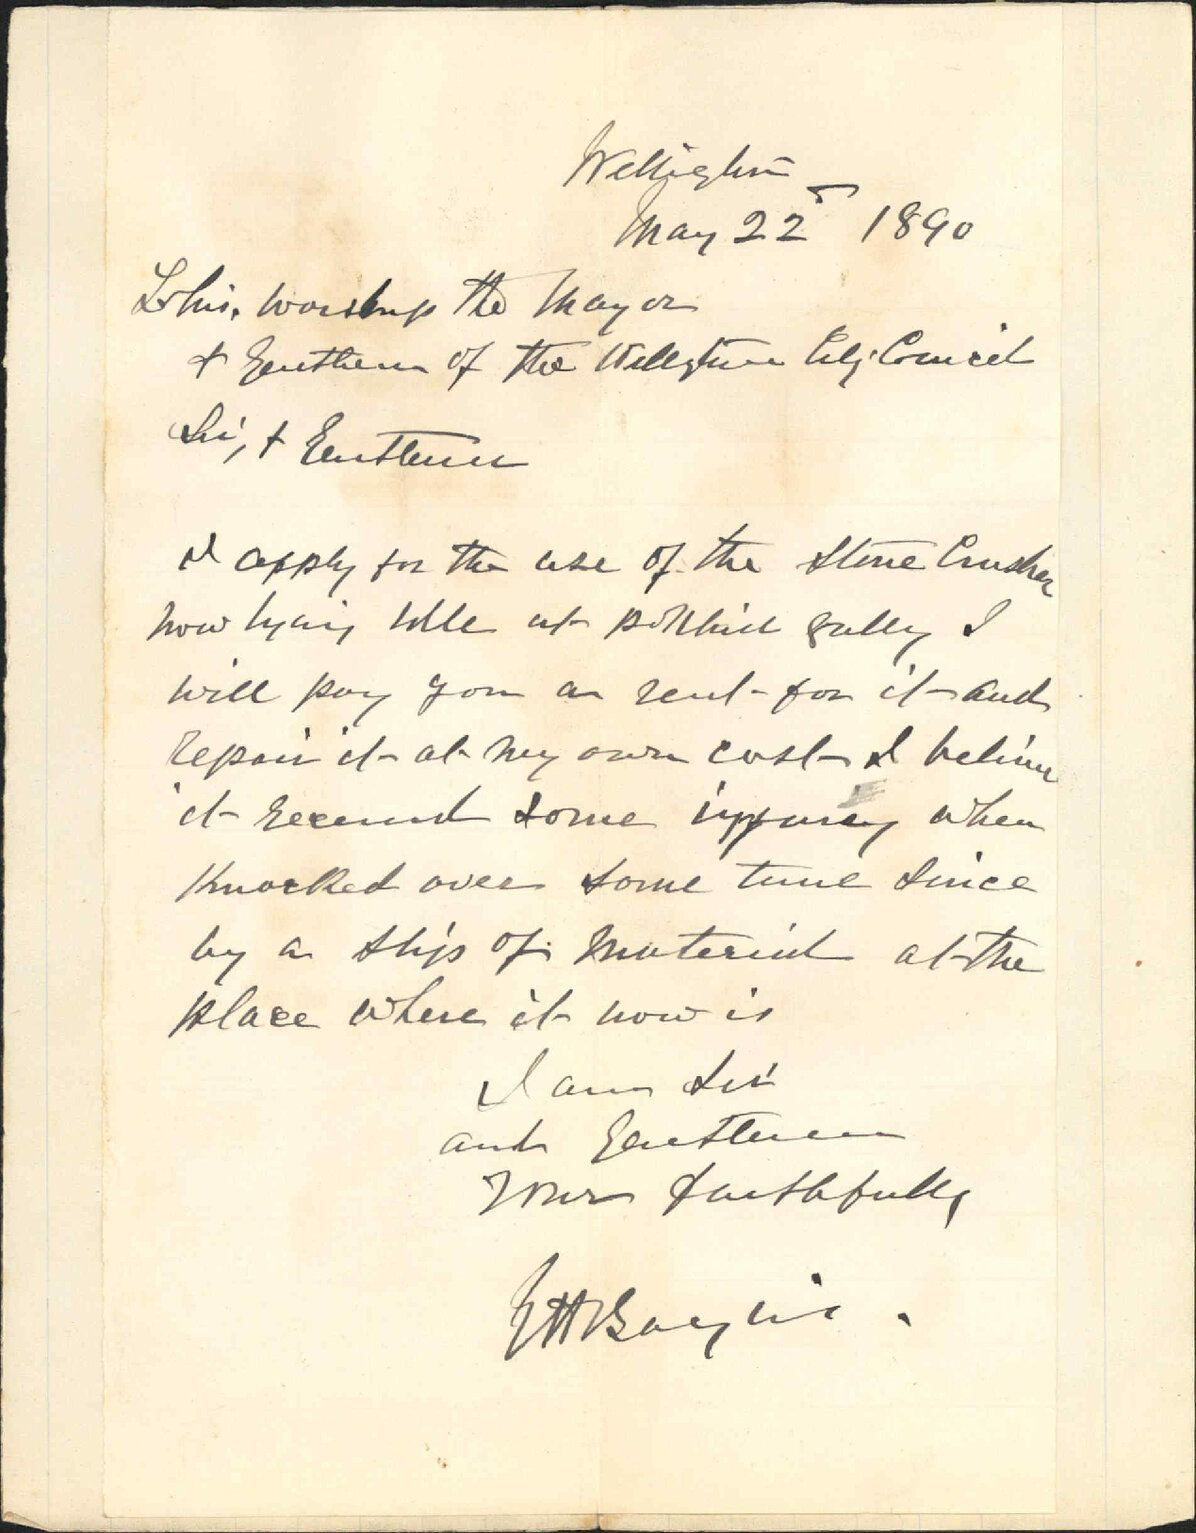 Wellington
May 22 1890
To his worship the Mayor
& Gentlemen of the Wellington City Council
Sir, & Gentlemen
I apply for the use of the Stone Crusher
now lying Idle at polhill gully I
will pay you a rent for it and
repair it at my own cost I believe
it received some injury when
knocked over some time since
by a slip of material at the
place where it now is
I am Sir
and Gentlemen
Yours faithfully